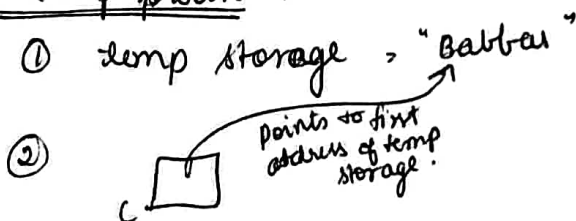 ① temp storage, "Babbar"
②
points to first
address of temp
storage.
C